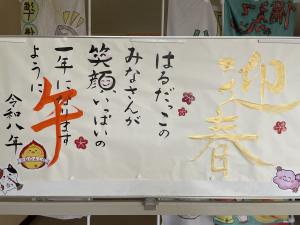 迎春
はるだっこの
みなさんが
笑顔いっぱいの
一年になります
ように
午
令和八年